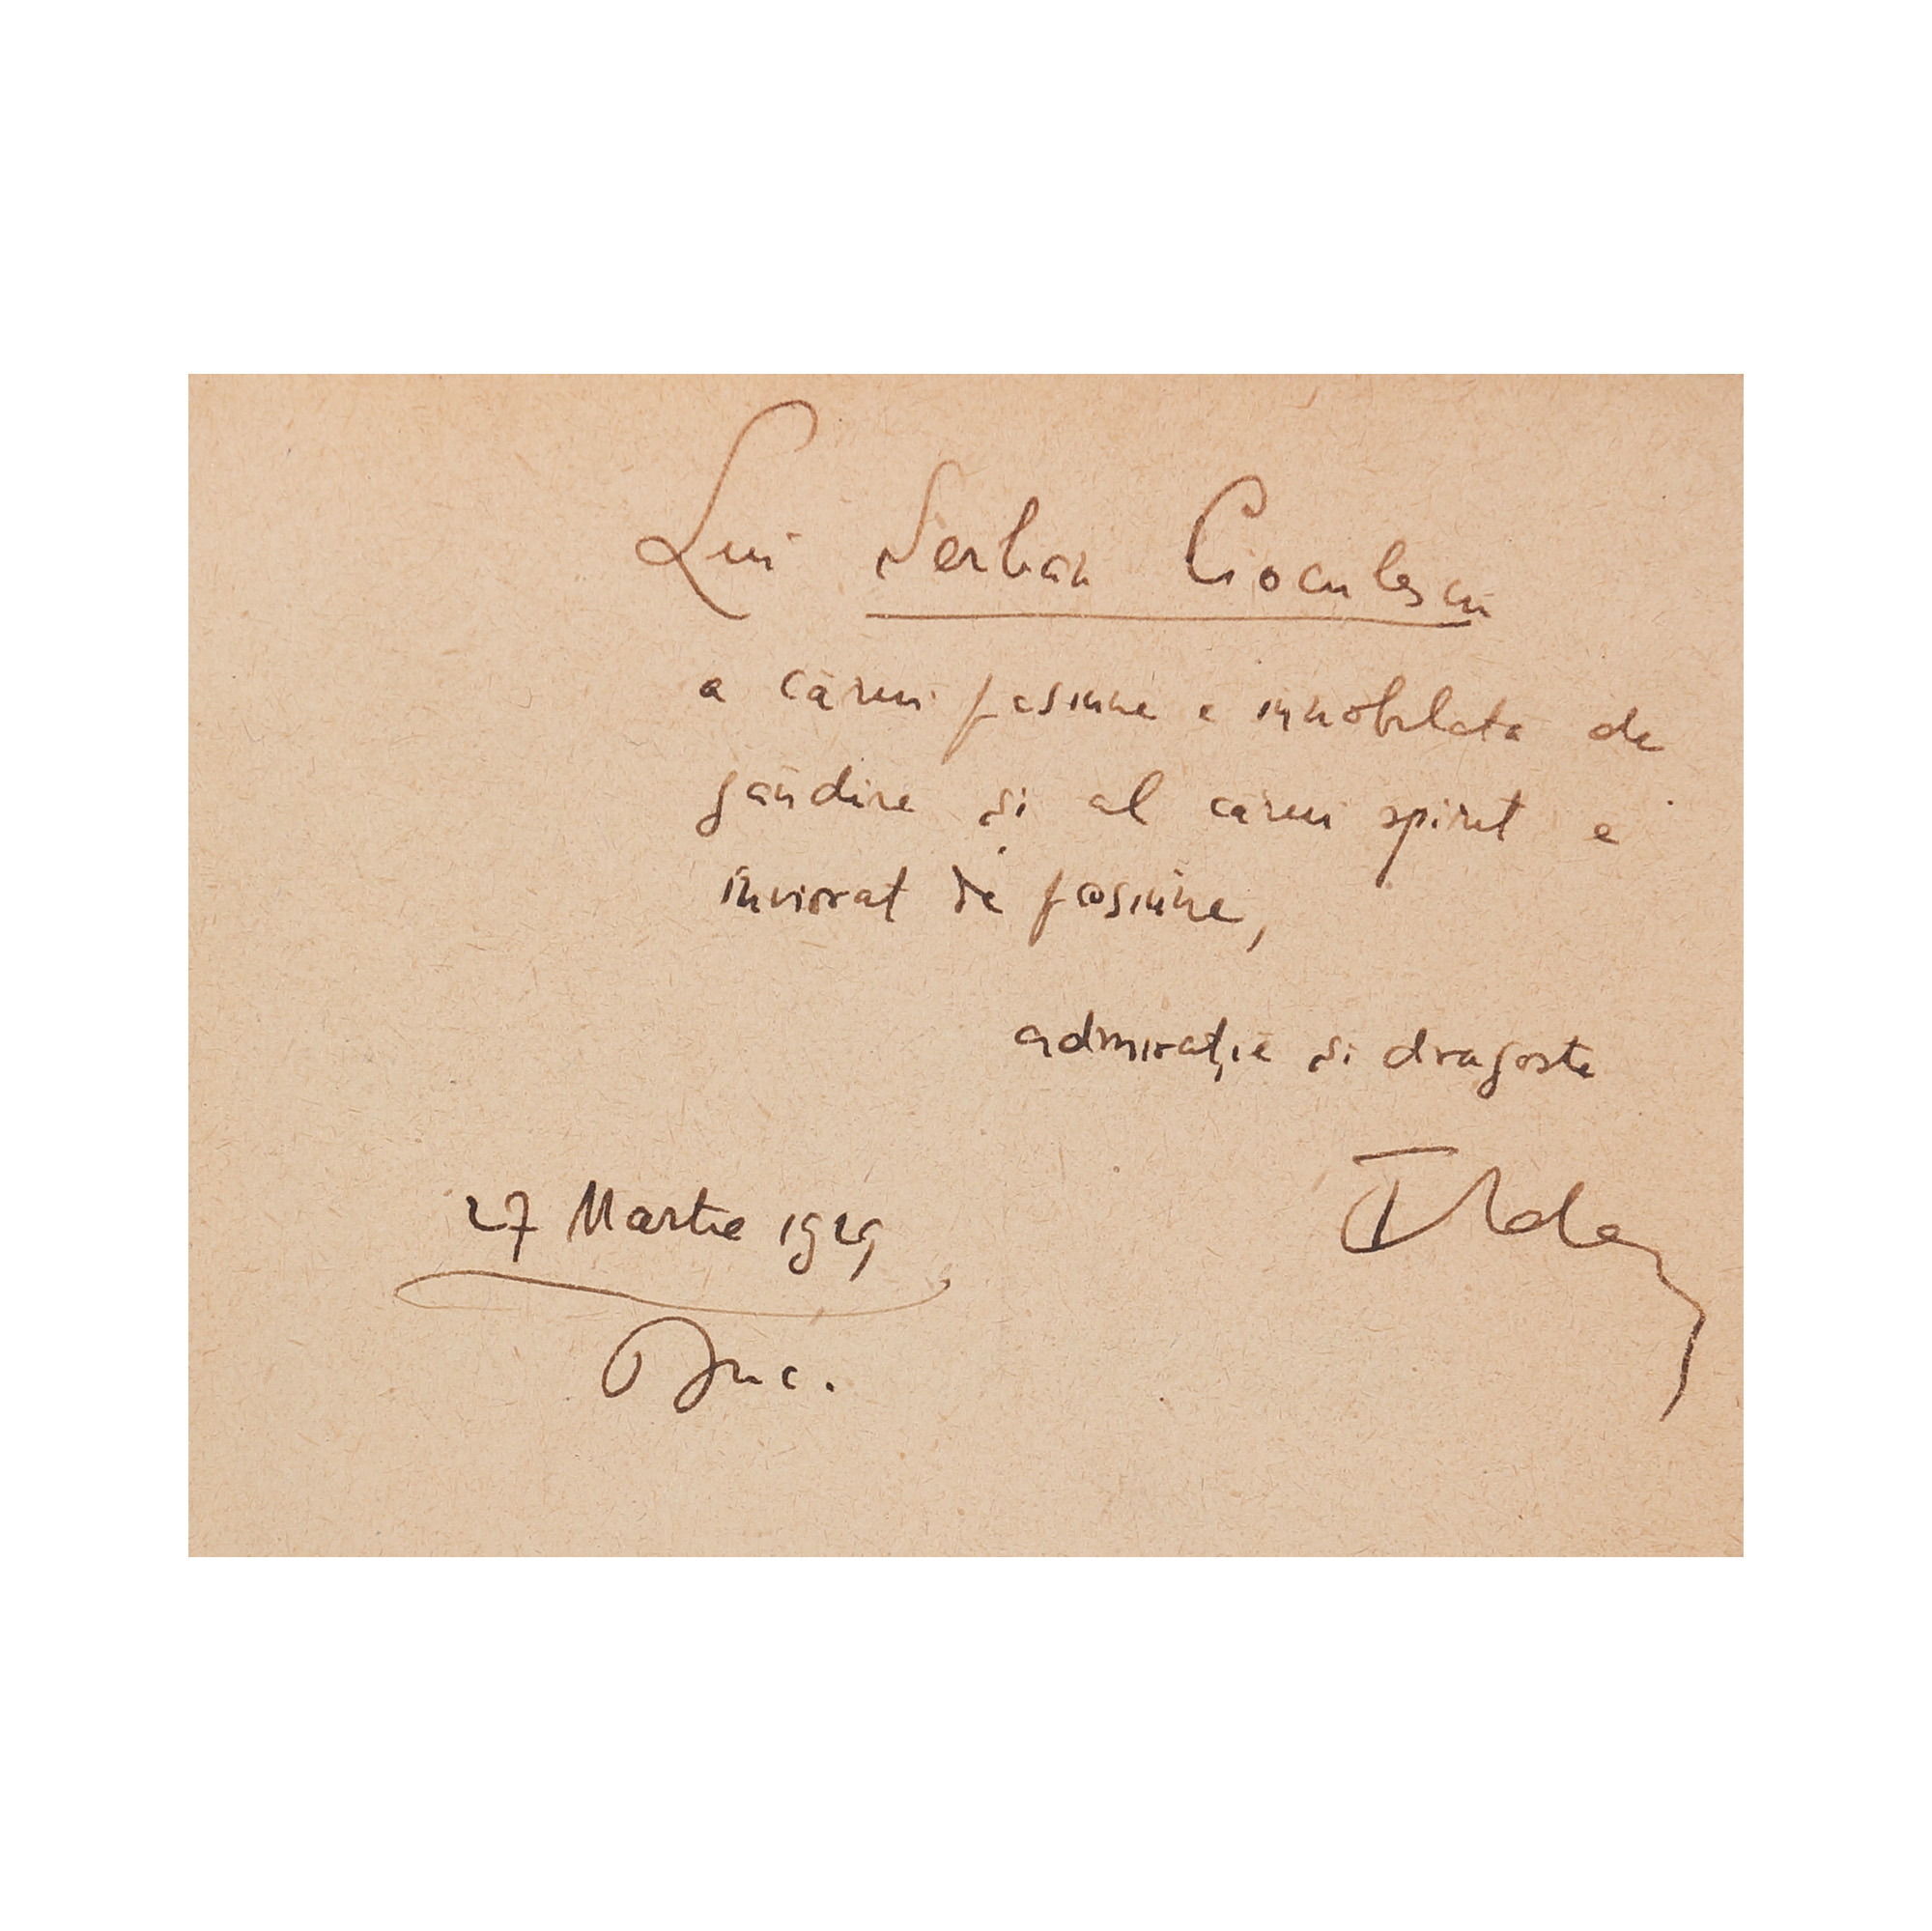 Lui Serban Cioculescu
a cărui pasiune e innobilata de
gândire și al cărui spirit e
înviorat de pasiune,
admirație si dragoste
27 Martie 1929
Buc.